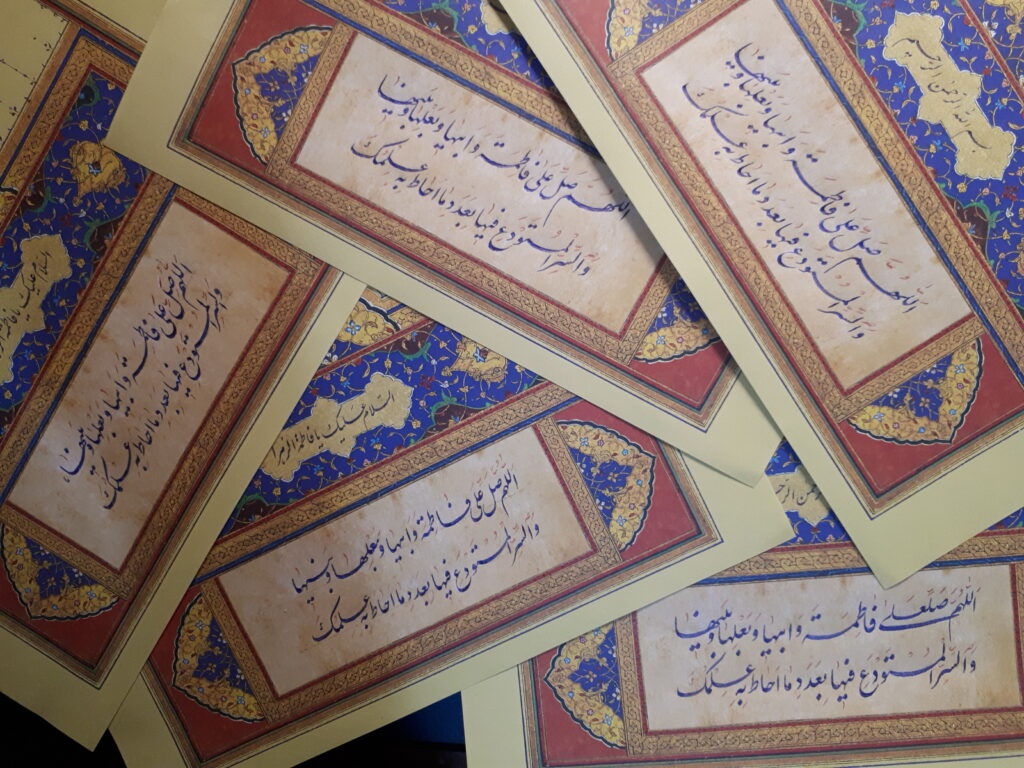 اللهم صل علی فاطمة و ابیها و بعلها و بنیها
والسر المستودع فیها بعدد ما احاط به علمک
اللهم صل علی فاطمة و ابیها و بعلها و بنیها
والسر المستودع فیها بعدد ما احاط به علمک
بسم الله الرحمن الرحیم
اللهم صل علی فاطمة و ابیها و بعلها و بنیها
والسر المستودع فیها بعدد ما احاط به علمک
السلام علیک یا فاطمة
السلام علیک یا فاطمة الزهرا
اللهم صل علی فاطمة و ابیها و بعلها و بنیها
والسر المستودع فیها بعدد ما احاط به علمک
الرحمن الرحیم
اللهم صل علی فاطمة و ابیها و بعلها و بنیها
والسر المستودع فیها بعدد ما احاط به علمک